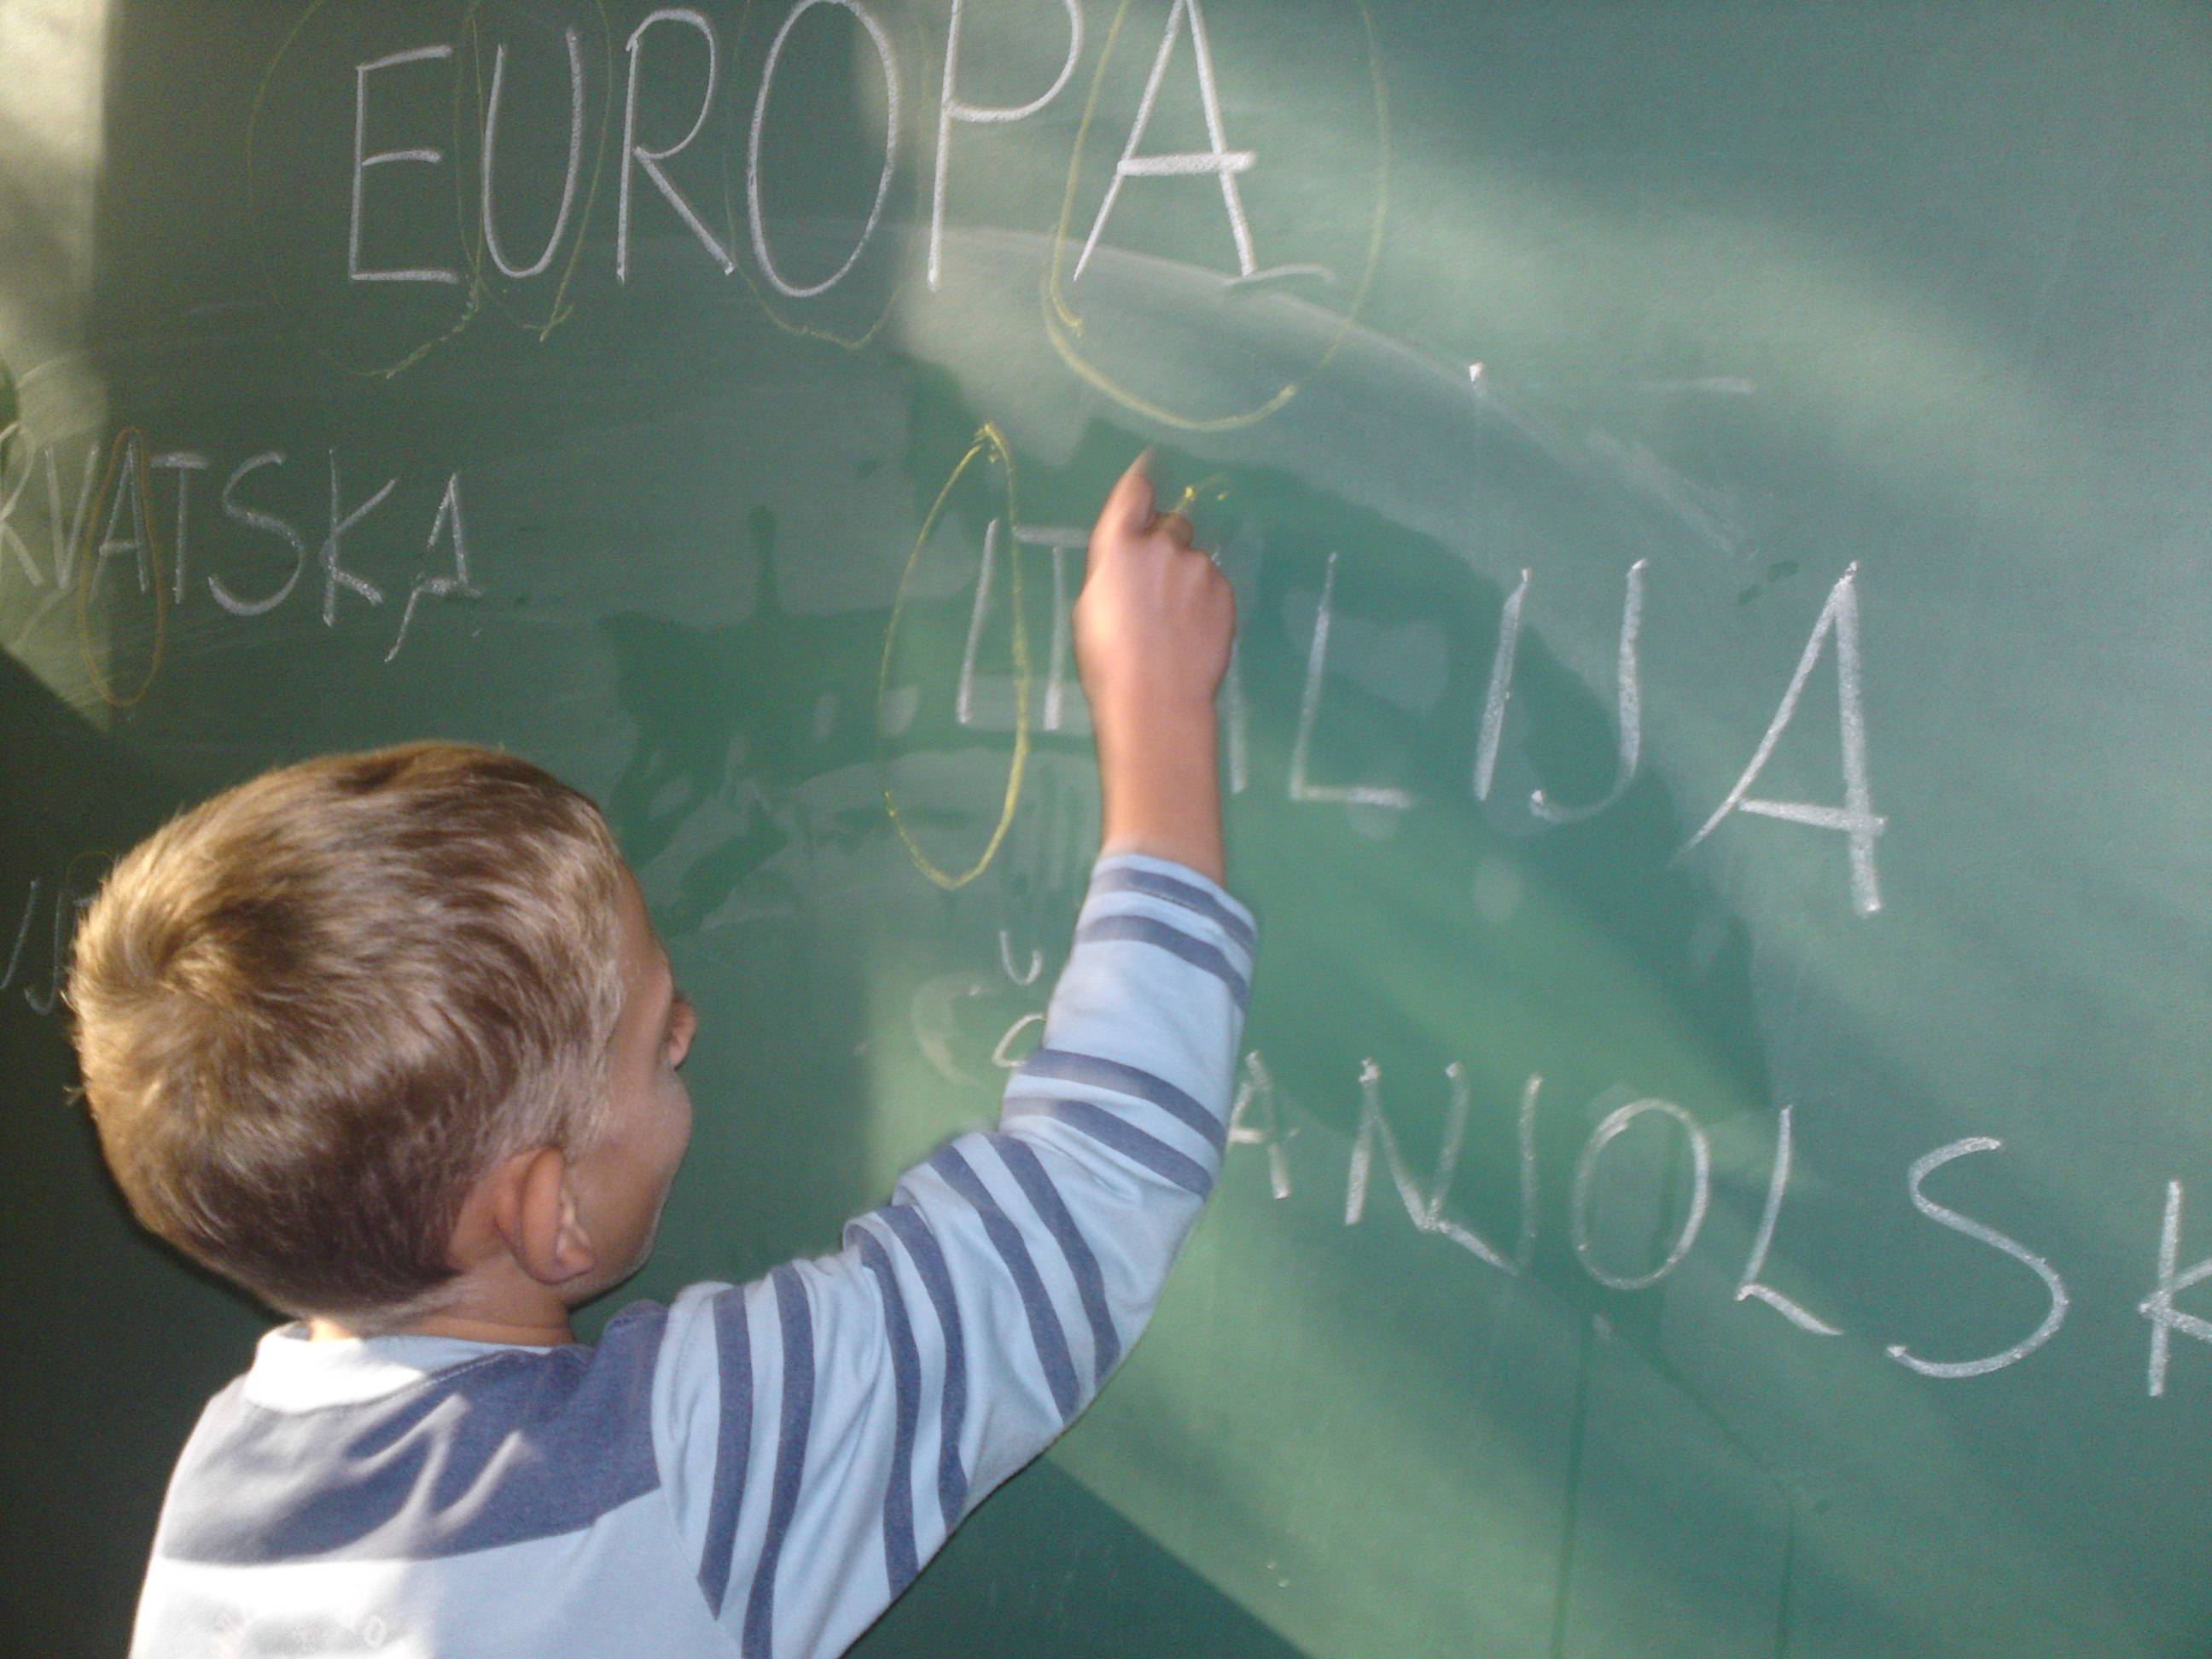 EUROPA
RVATSKA
ITALIJA
ANJOLSK